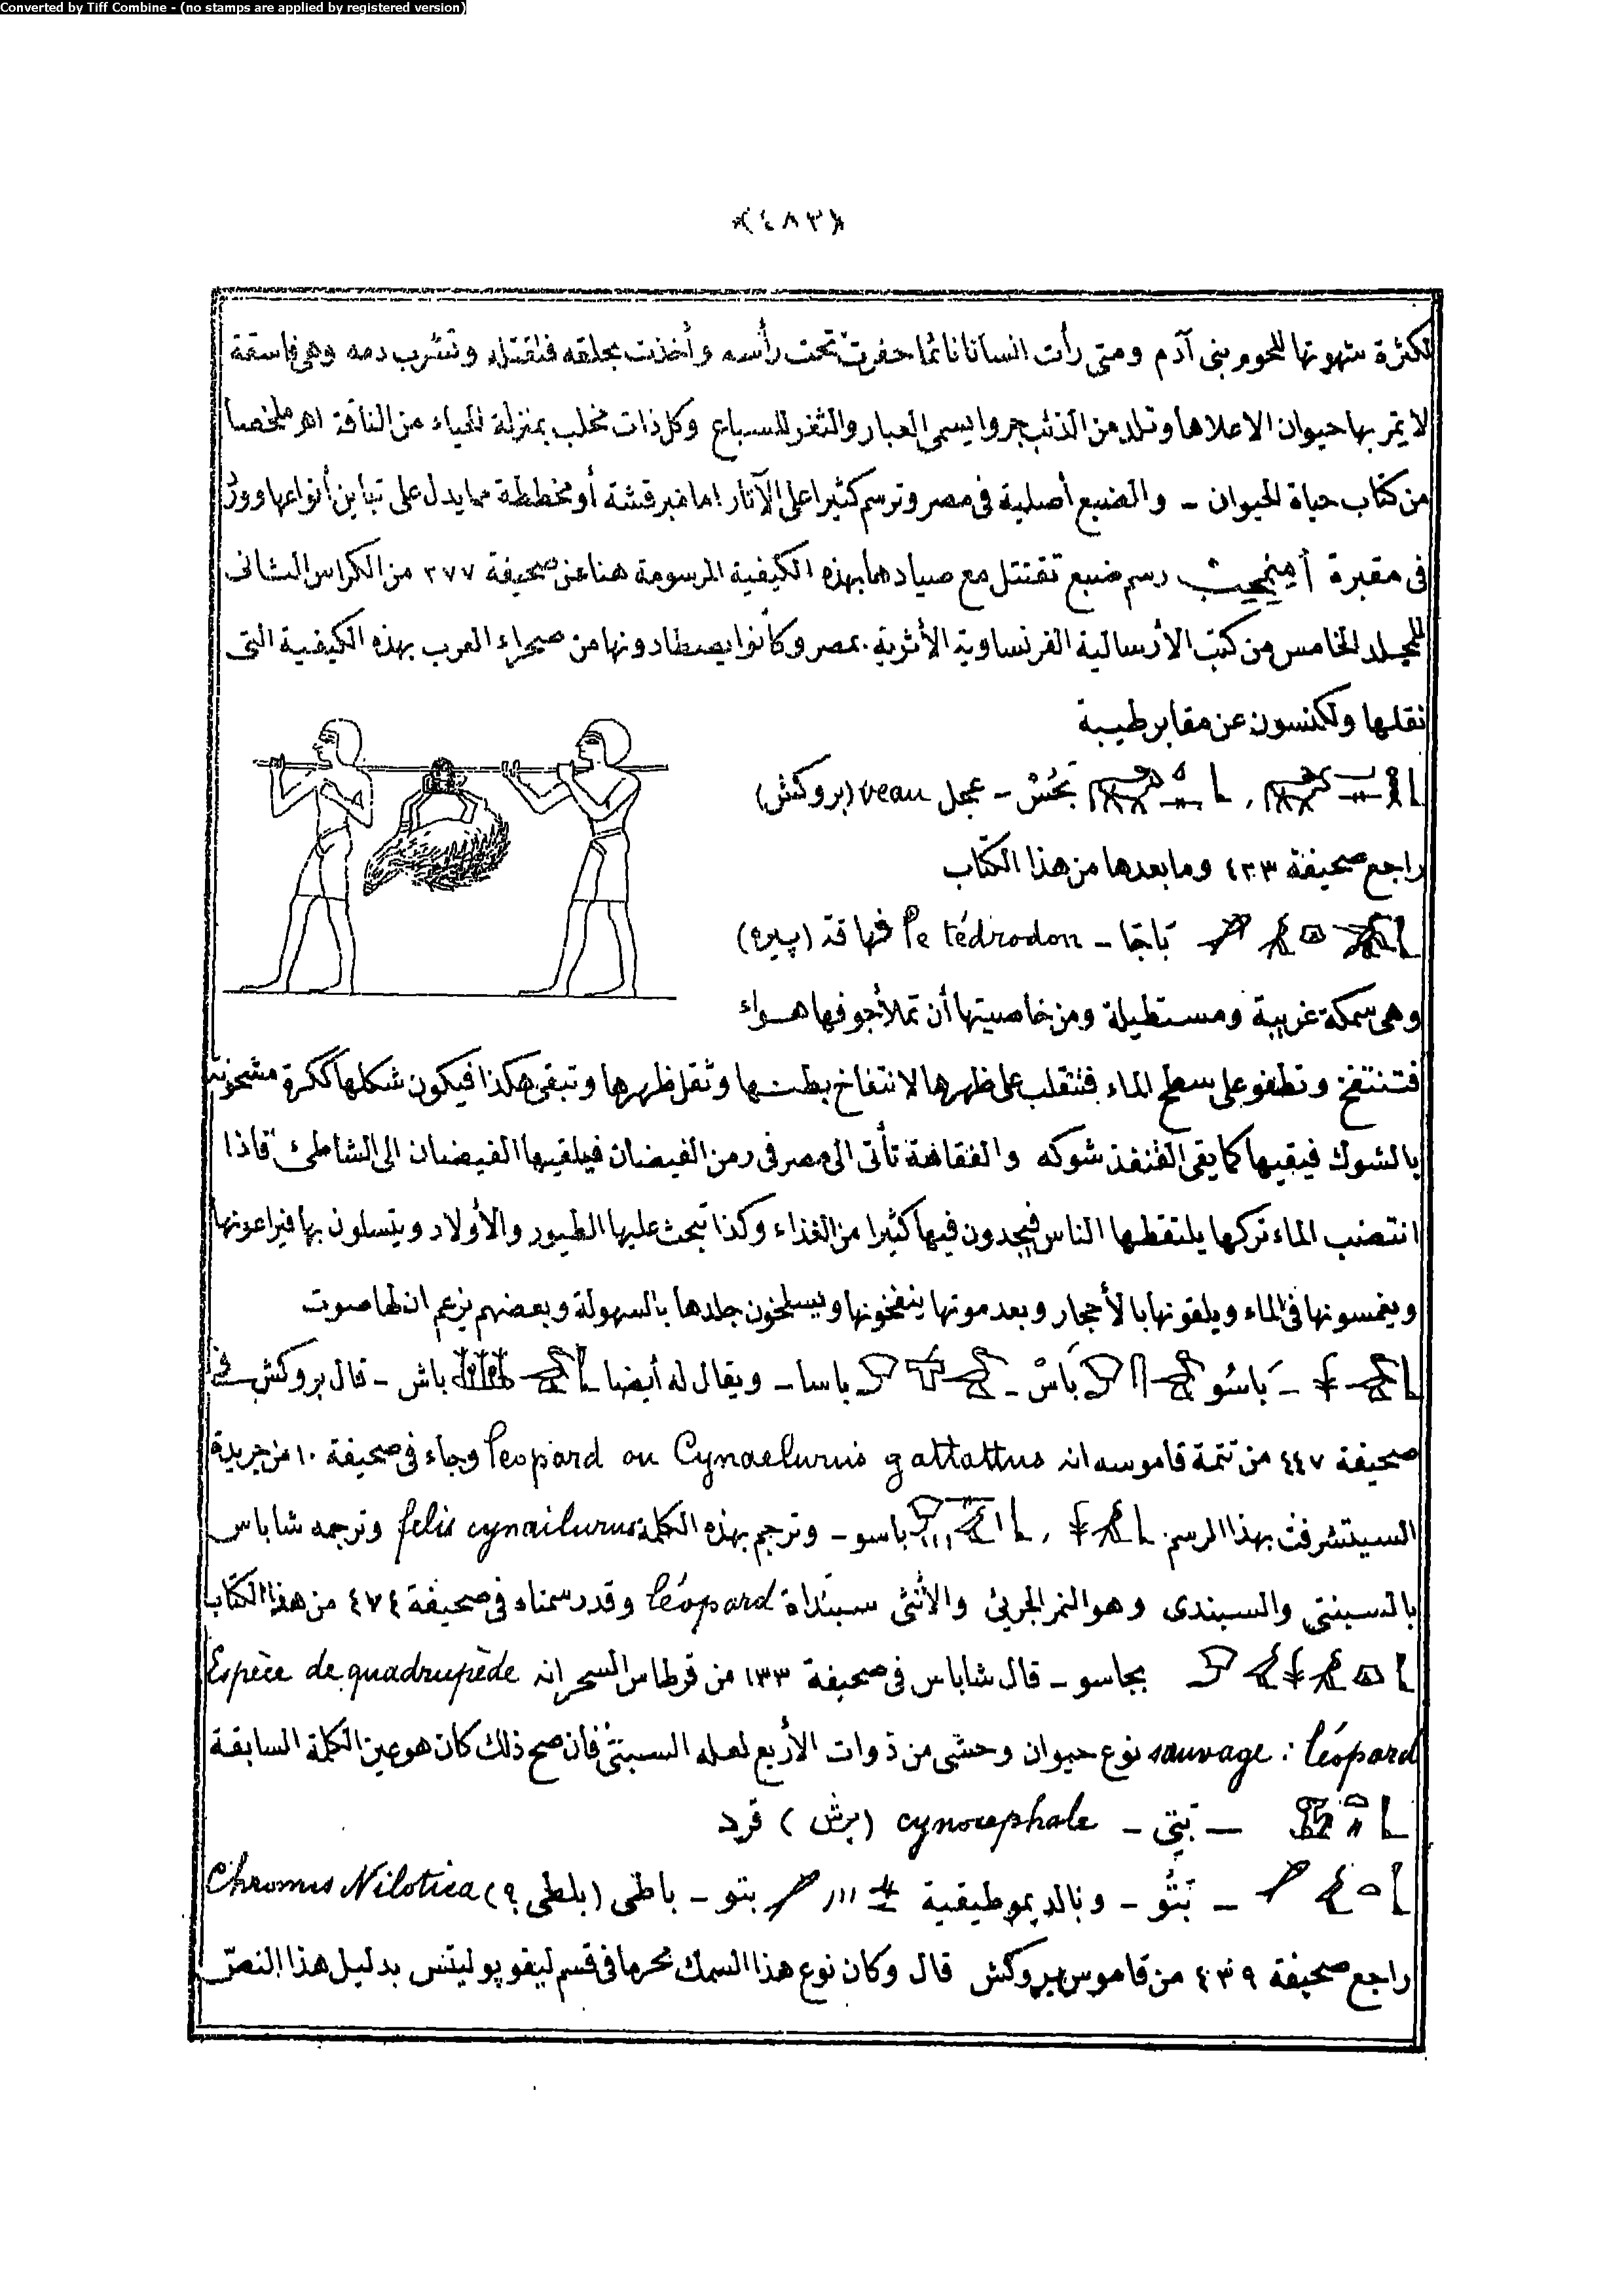 Converted by Tiff Combine - (no stamps are applied by registered version)
﴿٤٨٣﴾
لكثرة شهوتها للحوم بنى آدم ومتى رأت انسانا نائما حفرت تحت رأسه وأخذت بحلقه فتقتله وتشرب دمه وهى فاسقة
لا يمر بها حيوان الا علاها وتلد من الذئب جروا يسمى العبار والثفر للسباع وكل ذات مخلب بمنزلة الحياء من الناقة اهر ملخصا
من كتاب حياة الحيوان – والضبع أصلية فى مصر وترسم كثيرا على الآثار اما مبرقشة أو مخططة مما يدل على تباين أنواعها وورد
فى مقبرة رسم ضبع تقتتل مع صيادها بهذه الكيفية المرسومة هنا عن صحيفة ٢٧٧ من الكراس الثانى
للمجلد الخامس من كتب الأرسالية الفرنساوية الأثرية بمصر وكانوا يصطادونها من صحراء العرب بهذه الكيفية التى
نقلها ولكنسون عن مقابر طيبة
بَحُسْ – عجل veau (بروكش)
راجع صحيفة ٤٣٣ وما بعدها من هذا الكتاب
– le tédrodon فهاقة (پيره)
وهى سمكة غريبة ومستطيلة ومن خاصيتها أن تملأ جوفها هواء
فتنتفخ وتطفو على سطح الماء فتنقلب على ظهرها لانتفاخ بطنها وثقل ظهرها وتبقى هكذا فيكون شكلها ككرة مشحونة
بالشوك فيقيها كما يقى القنفذ شوكه والفقاهة تأتى الى مصر فى زمن الفيضان فيلقيها الفيضان الى الشاطئ فاذا
انتضب الماء تركها يلتقطها الناس فيجدون فيها كثيرا من الغذاء وكذا تبحث عليها الطيور والأولاد ويتسلون بها
ويغمسونها فى الماء ويلقونها بالأحجار وبعد موتها ينفخونها ويسلخون جلدها بالسهولة وبعضهم يزعم ان لها صوت
– بَاسُو بَاسْ – باسا – ويقال له أيضا باش – قال بروكش فى
صحيفة ٤٤٧ من تتمة قاموسه انه leopard ou Cynaelurus gattattus وجاء فى صحيفة ١٠ من جريدة
السيتشرفت بهذا الرسم , باسو – وترجم بهذه الكلمة felis cynailurus وترجمه شاباس
بالسبنتى والسبندى وهو النمر الجرئ والأنثى سبنداة léopard وقد رسمناه فى صحيفة ٤٧٤ من هذا الكتاب
بجاسو – قال شاباس فى صحيفة ١٣٣ من قرطاس السحر انه Espèce de quadrupède
sauvage : léopard نوع حيوان وحشى من ذوات الأربع لعله السبنتى فان صح ذلك كان هو عين الكلمة السابقة
– بَتِى – cynocephale (برش) قرد
– بَتُو – وبالديموطيقية بتو – باطى (بلطى ؟) Chromis Nilotica
راجع صحيفة ٤٣٩ من قاموس بروكش قال وكان نوع هذا السمك محرما فى قسم ليقوپوليتس بدليل هذا النص